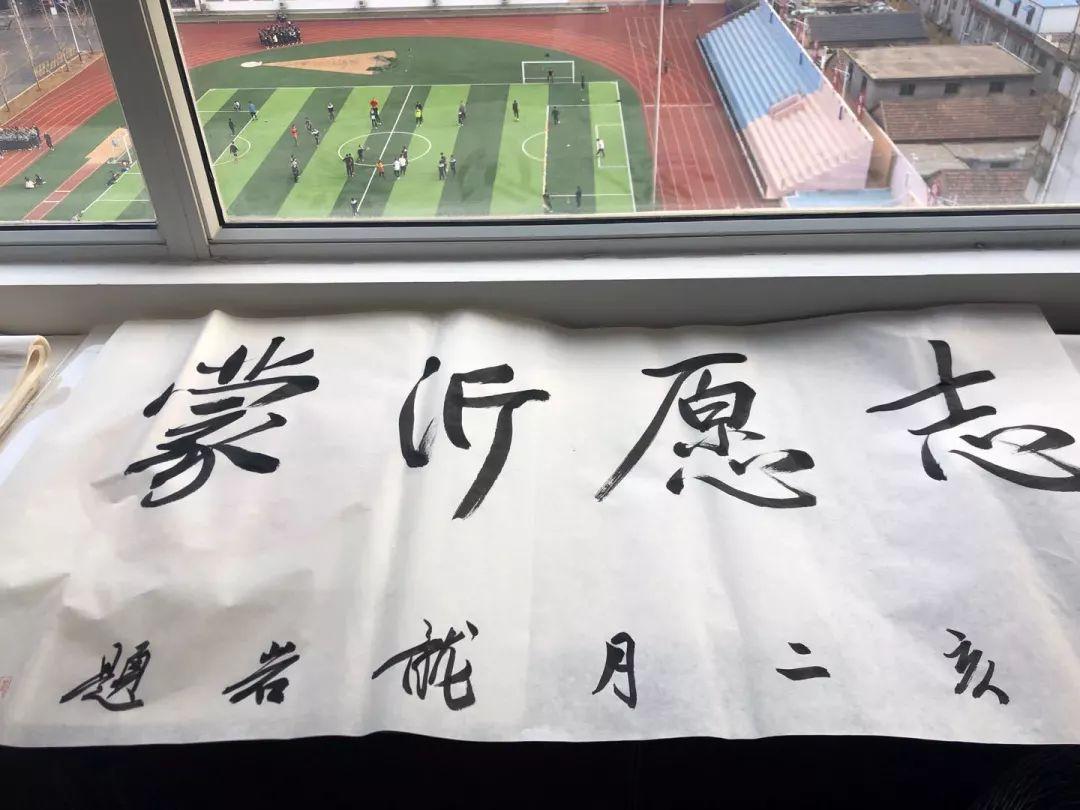 志愿沂蒙
亥二月龍岩題